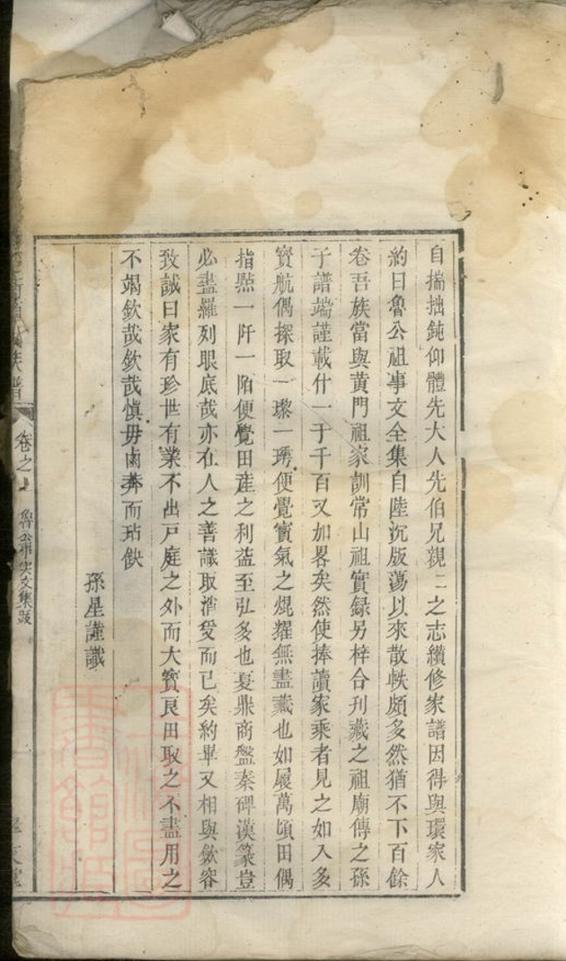 自揣拙鈍仰體先大人先伯兄親二之志纘修家譜因得與環家人
約曰魯公祖事文全集自陸沉版蕩以來散帙頗多然猶不下百餘
卷吾族當與黃門祖家訓常山祖實録另梓合刊藏之祖廟傳之孫
子譜端謹載什一于千百又加畧矣然使捧讀家乘者見之如入多
寳航偶探取一瓈一琇便覺寳氣之焜耀無盡藏也如履萬頃田偶
指㸃一阡一陌便覺田産之利益至弘多也夏鼎商盤秦碑漢篆豈
必盡羅列眼底哉亦在人之善識取消受而已矣約畢又相與斂容
致誠曰家有珍世有業不出戸庭之外而大寳良田取之不盡用之
不竭欽哉欽哉慎毋鹵莽而玷缺
孫星謹識
族譜
卷之上
魯公事實文集跋